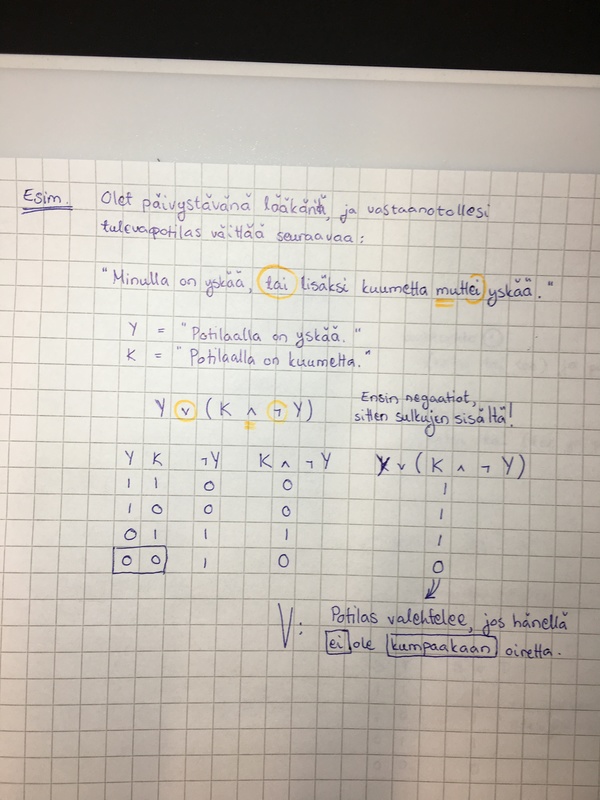 Esim. Olet päivystävänä lääkärinä, ja vastaanotollesi
tuleva potilas väittää seuraavaa:
"Minulla on yskää, tai lisäksi kuumetta muttei yskää."
Y = "Potilaalla on yskää."
K = "Potilaalla on kuumetta."
Y ∨ (K ∧ ¬ Y)
Ensin negaatiot,
sitten sulkujen sisältä!
Y K ¬Y K ∧ ¬ Y Y ∨ (K ∧ ¬ Y)
1 1 0 0 1
1 0 0 0 1
0 1 1 1 1
0 0 1 0 0
V: Potilas valehtelee, jos hänellä
ei ole kumpaakaan oiretta.